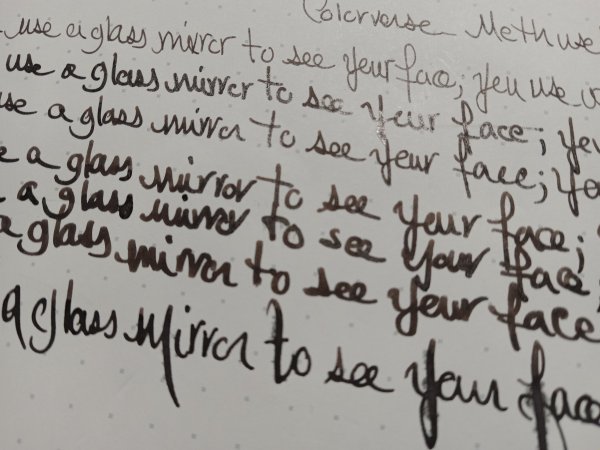 Colorverse Methuse
use a glass mirror to see your face; you use
use a glass mirror to see your face; you
use a glass mirror to see your face; you
a glass mirror to see your face;
a glass mirror to see your face;
a glass mirror to see your face
a glass mirror to see your face